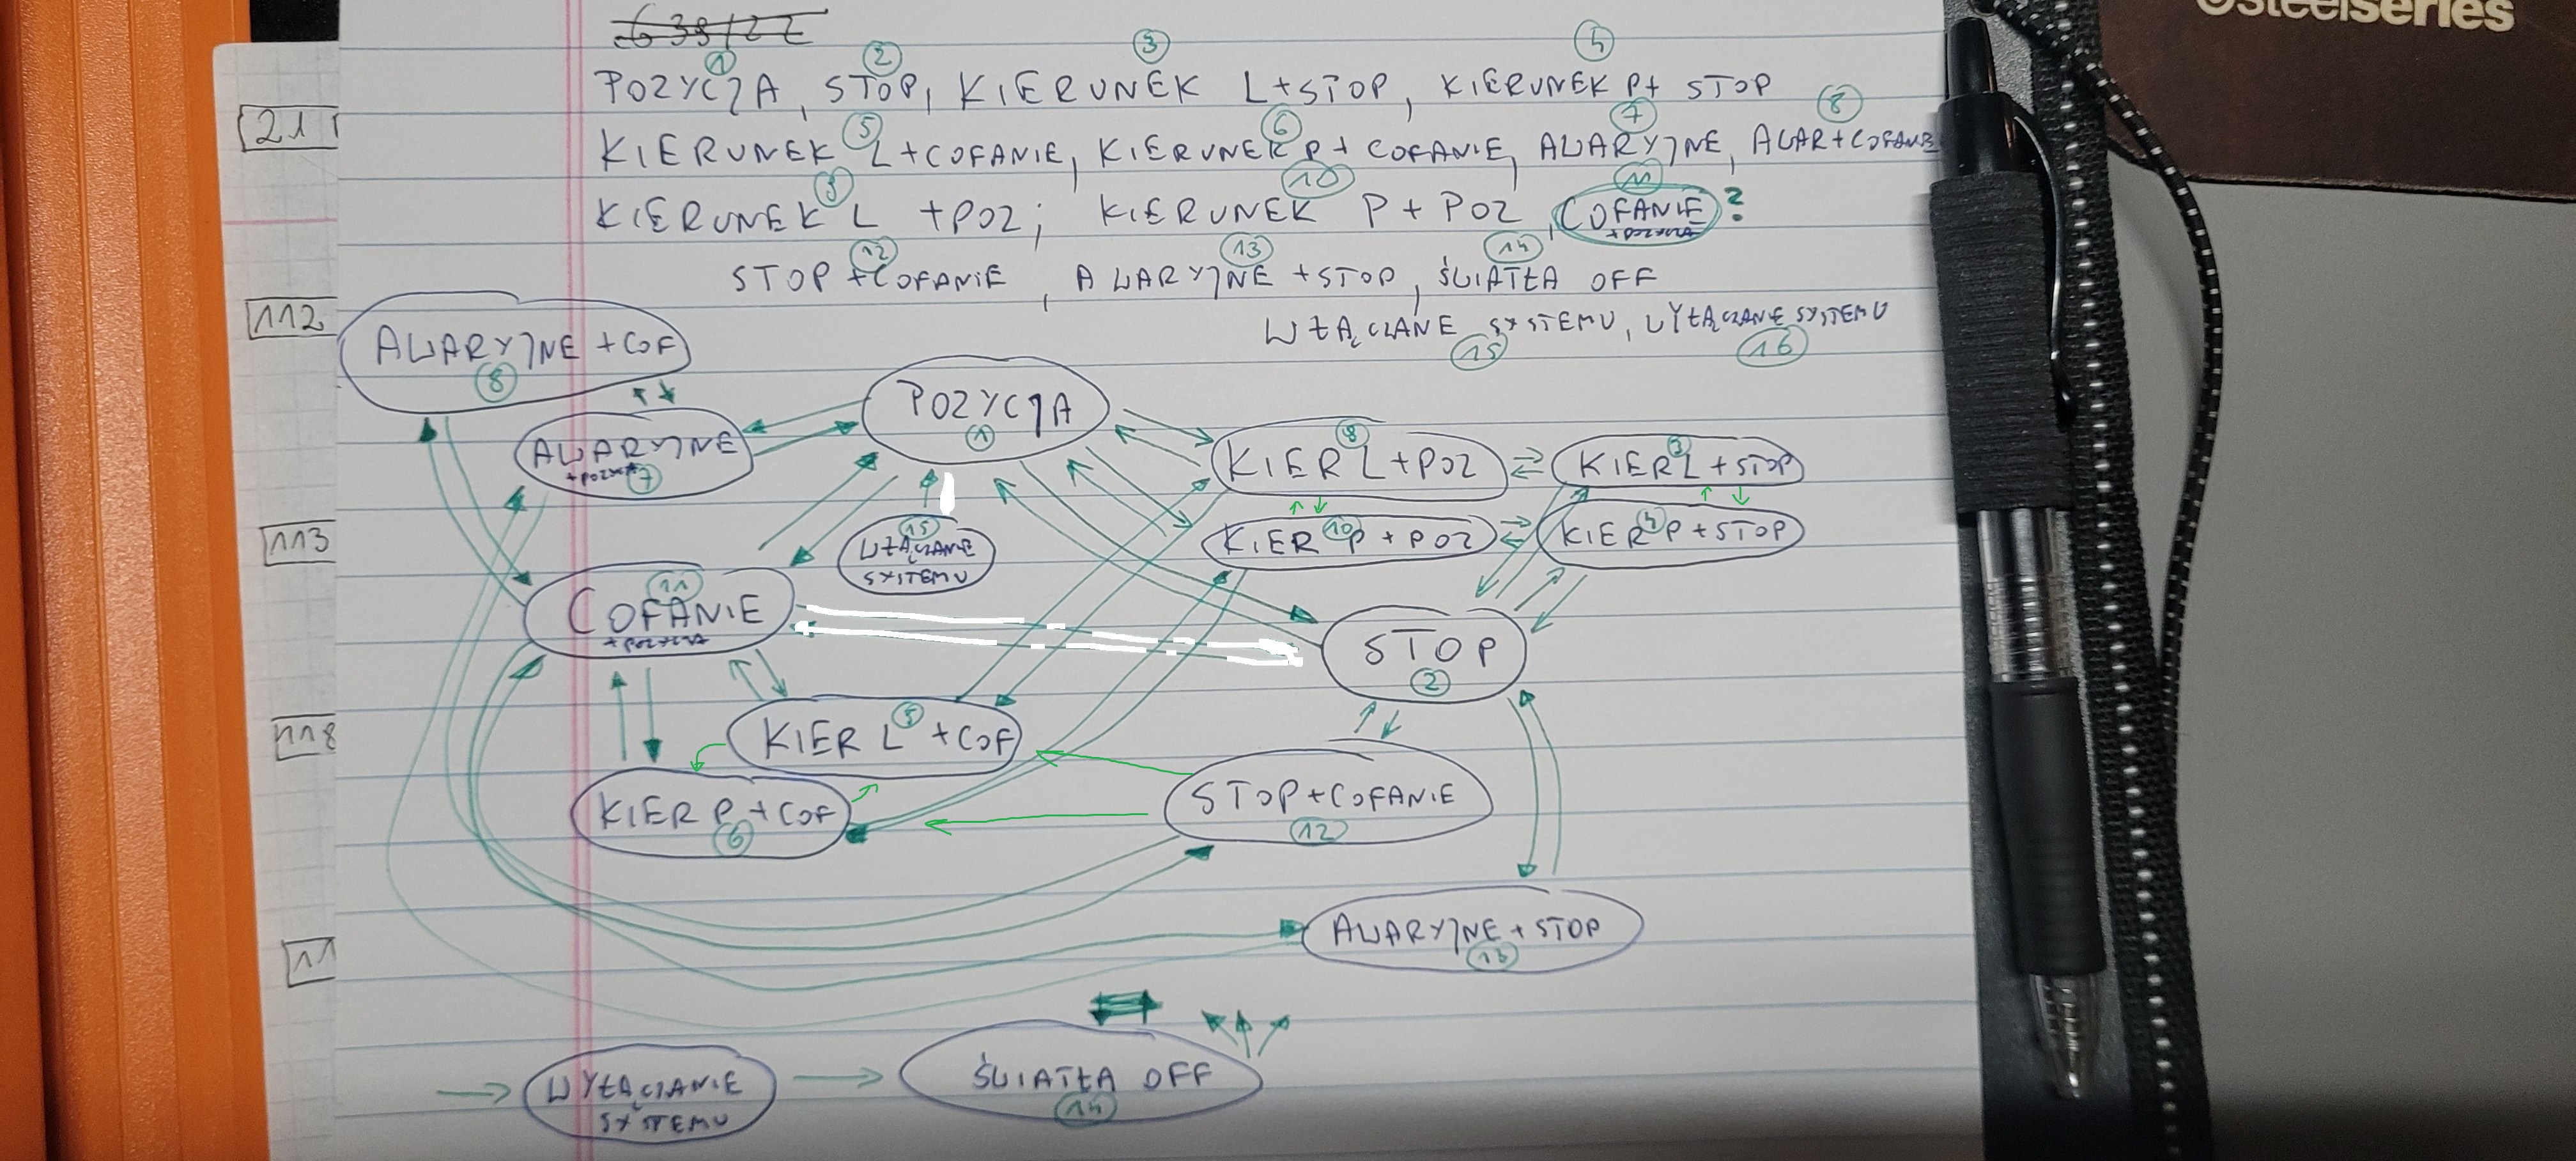 steelseries
639/22
1 2 3 4
POZYCJA, STOP, KIERUNEK L+STOP, KIERUNEK P+ STOP
5 6 7 8
KIERUNEK L+COFANIE, KIERUNEK P+ COFANIE, AWARYJNE, AWAR+COFANIE
9 10 11
KIERUNEK L +POZ; KIERUNEK P + POZ, COFANIE ?
+ POZYCJA
12 13 14
STOP +COFANIE, AWARYJNE +STOP, ŚWIATŁA OFF
WŁĄCZANE SYSTEMU, WYŁĄCZANE SYSTEMU
15 16
21
112
113
118
11
AWARYJNE +COF
8
POZYCJA
1
AWARYJNE
+POZYCJA 7
KIER L+POZ
9
KIER L +STOP
3
KIER P + POZ
10
KIER P +STOP
4
15
WŁĄCZANE
SYSTEMU
11
COFANIE
+ POZYCJA
STOP
2
KIER L +COF
5
KIER P +COF
6
STOP+COFANIE
12
AWARYJNE + STOP
13
WYŁĄCZANIE
SYSTEMU
ŚWIATŁA OFF
14